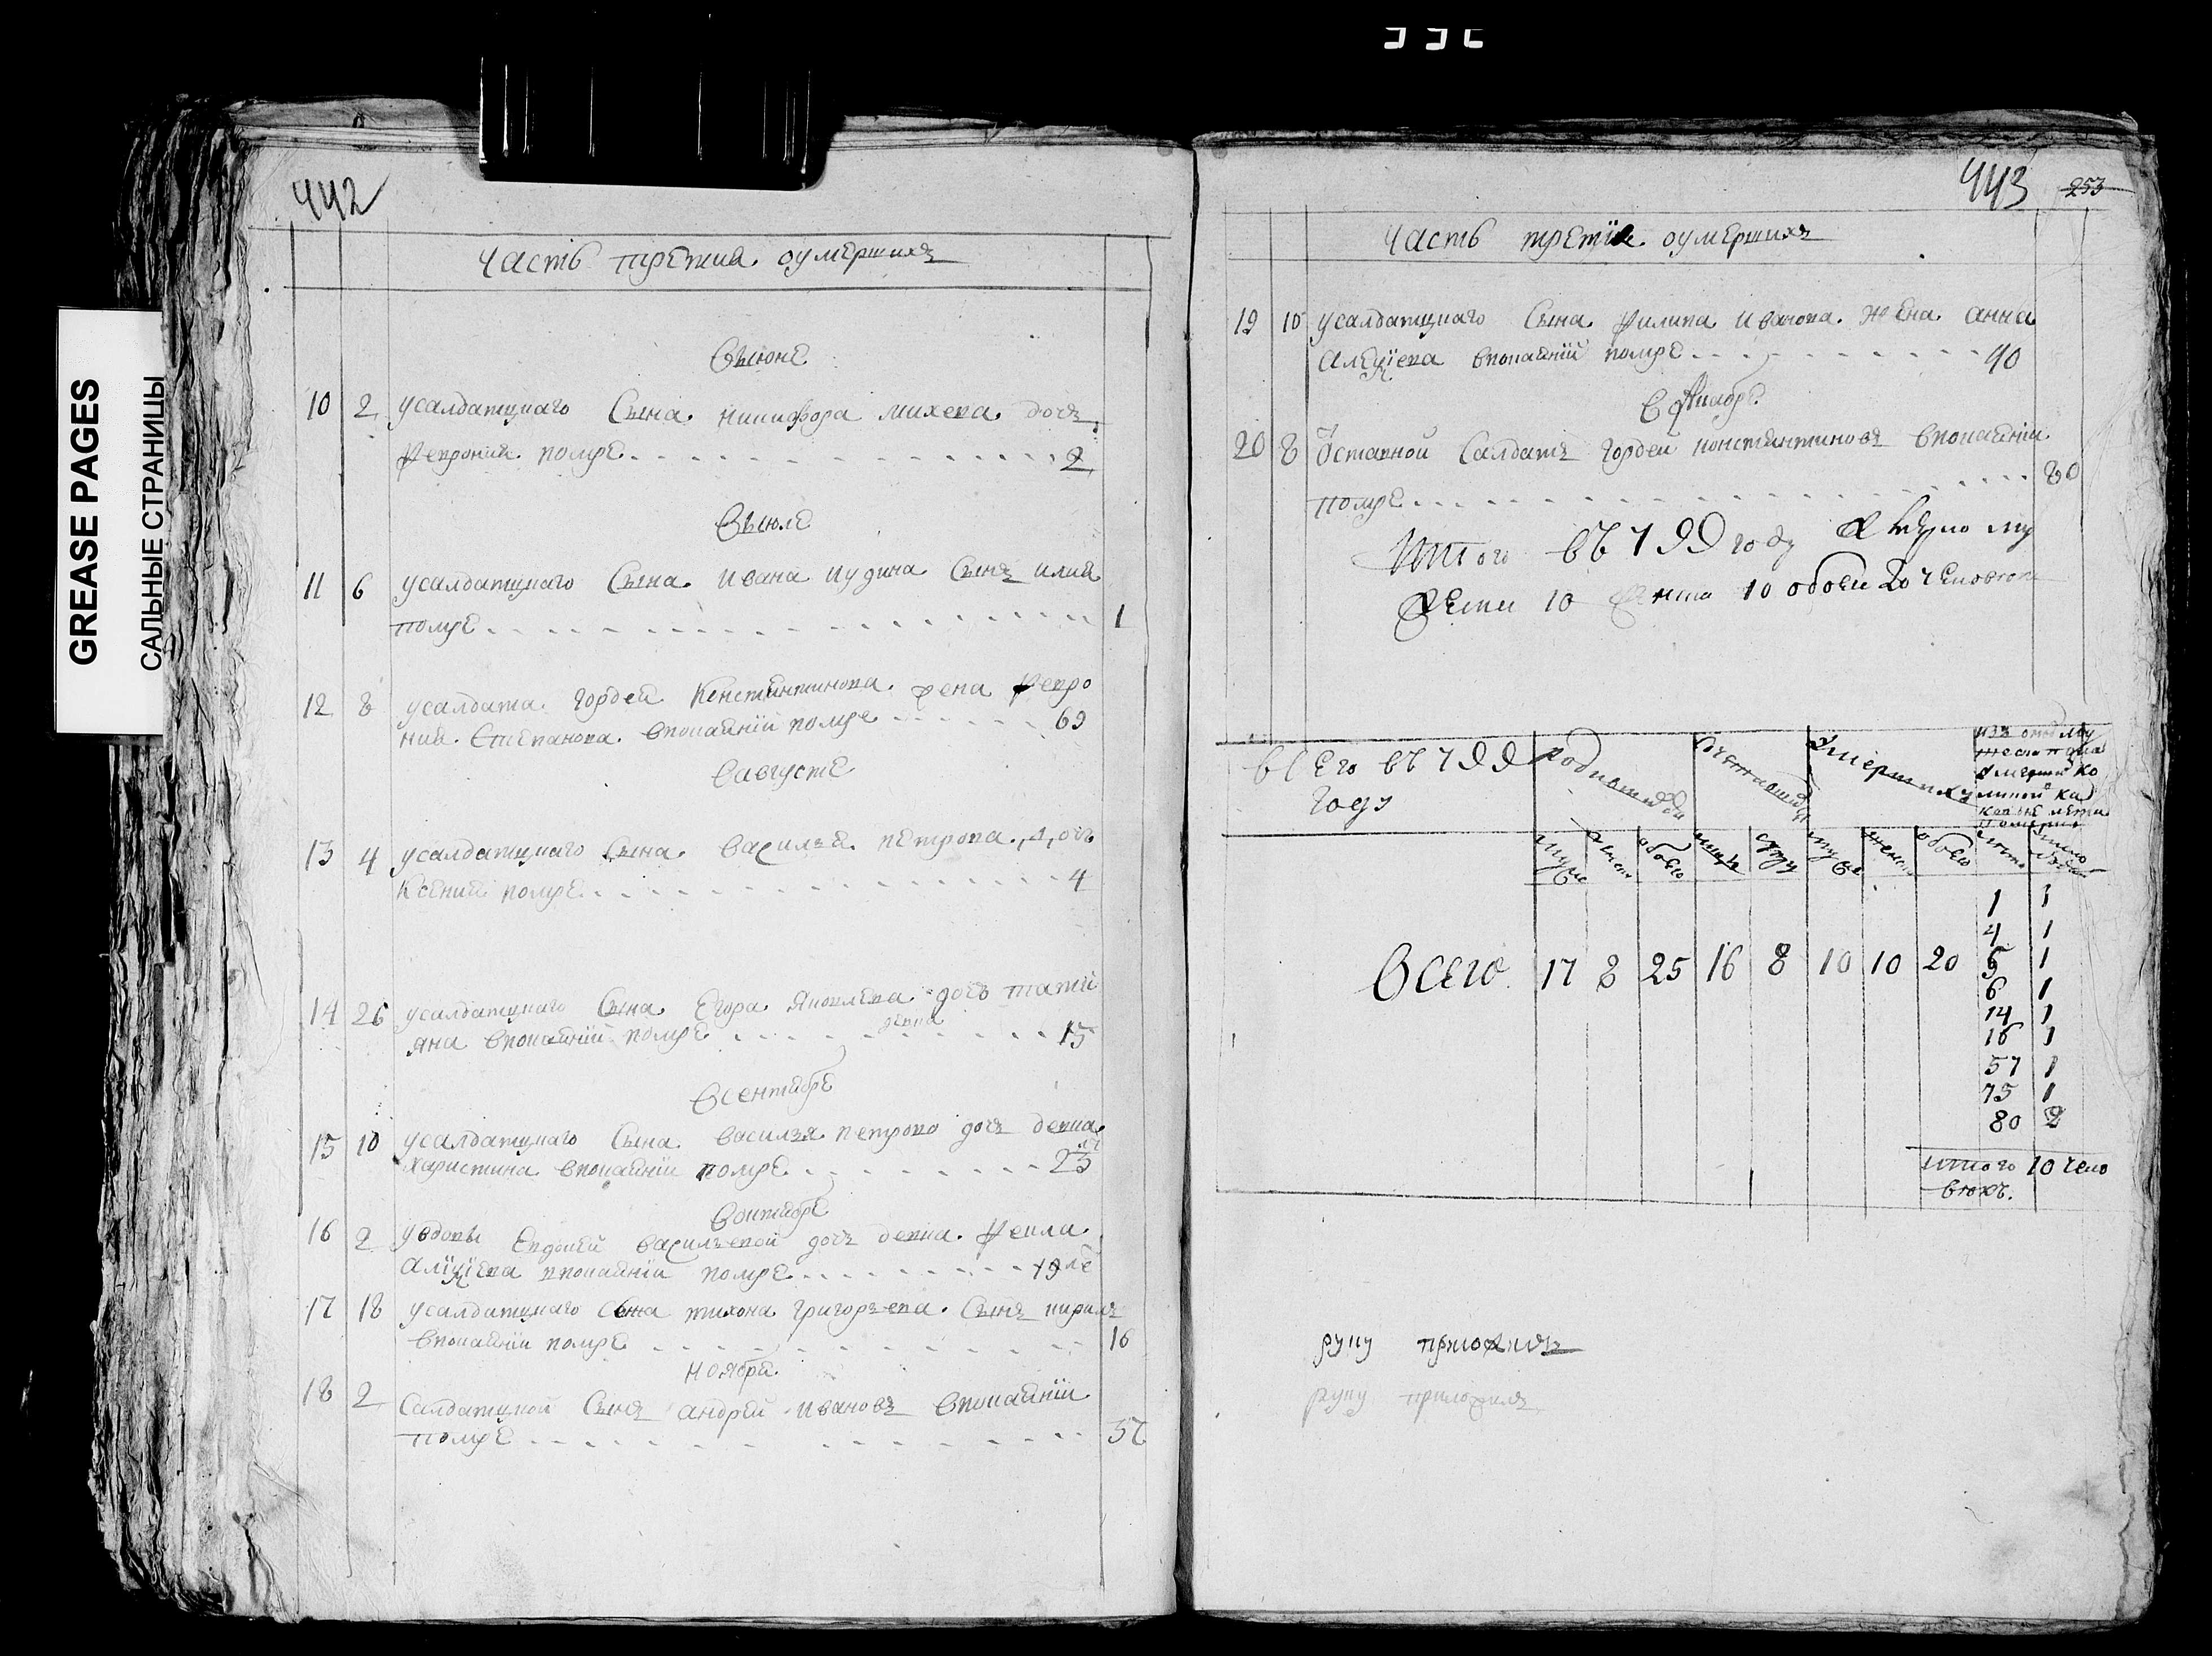 GREASE PAGES
САЛЬНЫЕ СТРАНИЦЫ
442
часть третия оумершихъ
Въюнѣ
10 2 усалдатцкаго Сына никифора михеева дочъ
Феврония помре 2
Въюле
11 6 усалдатцкаго Сына ивана иудина Сынъ илия
помре 1
12 8 усалдата гордея Константинова жена Февро
ния Степанова впокаянїи помре 69
Вавгусте
13 4 усалдатцкаго Сына василья петрова дочь
Ксения помре 4
14 26 усалдатцкаго Сына Егора яковлева дочь татия
девка
яна впокаянїи помре 15
Всентябре
15 10 усалдатцкаго Сына василья петрова дочъ девка
харистина впокаянїи помре 23
Воктябре
16 2 увдовы Евдокеи васильевой дочъ девка Фекла
впокаянїи помре 19
17 18 усалдатцкаго Сына тихона григорьева Сынъ кирилъ
впокаянїи помре 16
ноября
18 2 Салдатцкой Сынъ андрей ивановъ впокаянїи
помре 57
443 253
часть третїя оумершихъ
19 10 усалдатцкаго Сына филипа иванова жена анна
впокаянїи помре 40
20 8 Оставной Салдатъ гордей констянтиновъ впокаянїи
помре 80
Итого въ 1799 году му
10 10 обоего 20 человекъ
всего въ 1799 году
умершихъ
обоего
обоего
Всего 17 8 25 16 8 10 10 20
1 1
4 1
5 1
6 1
14 1
16 1
57 1
75 1
80 2
итого 10 чело
векъ.
руку приложилъ
руку приложилъ